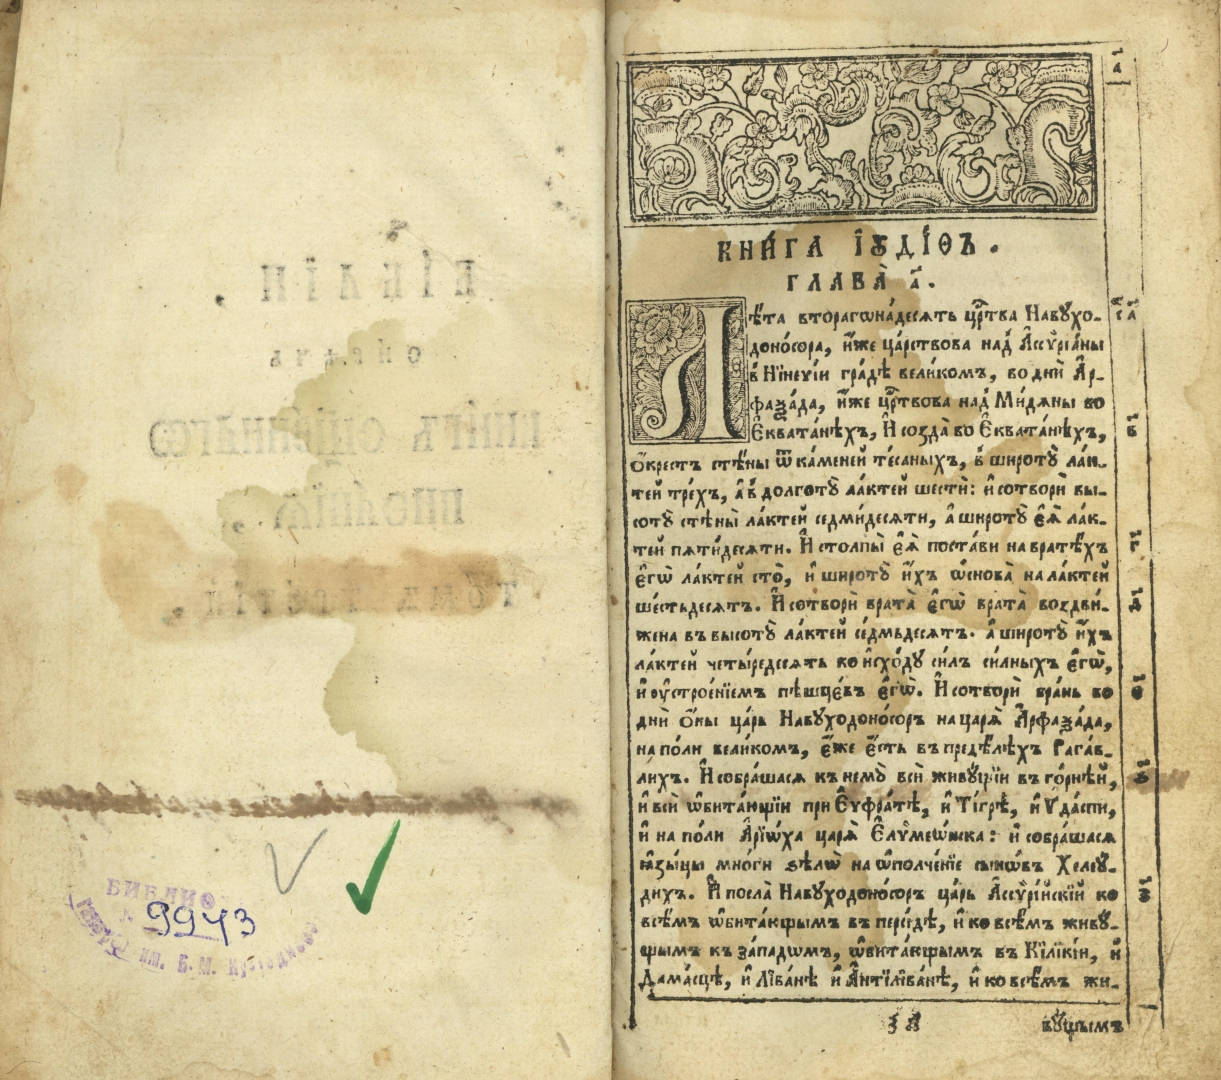 БИБЛИО
9973
им. Б. М. Кустодиева
а҃
КНИ́ГА ІꙊДІ́ѲЪ.
ГЛАВА̀ а҃.
Лѣ́та вторагѡна́десѧть црⷭ҇тва Навꙋхо-
доно́сора, и҆́же ца́рствова над̾ А҆ссѷріа́ны
в̾ Нїнеѵі́и гра́дѣ вели́комъ, во дни̑ А҆р-
фаѯа́да, и҆́же црⷭ҇твова над̾ Ми́дѧны во
Е҆квата́нѣхъ, И҆ созда̀ во Е҆квата́нѣхъ,
ѻ҆́крестъ стѣ́ны ѿ ка́меней те́саныхъ, в̾ широтꙋ̀ ла́к-
тей тре́хъ, а҆ в̾ долготꙋ̀ ла́ктей шестѝ: и҆ сотворѝ вы-
сотꙋ̀ стѣны̀ ла́ктей седми́десѧти, а҆ широтꙋ̀ є҆ѧ̀ ла́к-
тей пѧти́десѧти. И҆ столпы̀ є҆ѧ̀ поста́ви на вратѣ́хъ
є҆гѡ̀ ла́ктей сто̀, и҆ широтꙋ̀ и҆́хъ ѡ҆снова̀ на ла́ктей
ше́стьдесѧтъ. И҆ сотворѝ врата̀ є҆гѡ̀ врата̀ воздви́-
жена въ высотꙋ̀ ла́ктей се́дмьдесѧтъ. а҆ широтꙋ̀ и҆́хъ
ла́ктей четы́редесѧть ко и҆схо́дꙋ си́лъ си́лныхъ є҆гѡ̀,
и҆ ᲂу҆строе́нїемъ пѣшцє́въ є҆гѡ̀. И҆ сотворѝ бра́нь во
дни̑ ѻ҆́ны ца́рь Навꙋходоно́соръ на царѧ̀ А҆рфаѯа́да,
на по́ли вели́комъ, є҆́же є҆́сть въ предѣ́лѣхъ Рага́в-
лихъ. И҆ собра́шасѧ къ немꙋ̀ всѝ живꙋ́щїи въ го́рнѣй,
и҆ всѝ ѡ҆бита́ющїи при Е҆ѵфра́тѣ, и҆ Ті́грѣ, и҆ Ѵ҆да́спи,
и҆ на по́ли А҆рїѡ́ха царѧ̀ Е҆лѷмео́нска: и҆ собра́шасѧ
ꙗ҆зы́цы мно́ги ѕѣлѡ̀ на ѡ҆полче́нїе сынѡ́въ Хелеꙋ́-
дихъ. И҆ посла̀ Навꙋходоно́соръ ца́рь А҆ссѷрі́йскїй ко
всѣ̑мъ ѡ҆бита́ющымъ въ персі́дѣ, и҆ ко всѣ̑мъ живꙋ́-
щымъ къ за́падѡмъ, ѡ҆бита́ющымъ въ Кїлїкі́и, и҆
Дама́сцѣ, и҆ Лїва́нѣ и҆ А҆нтїлїва́нѣ, и҆ ко всѣ̑мъ жи-
а҃
в҃
г҃
д҃
є҃
ѕ҃
з҃
вꙋ́щымъ